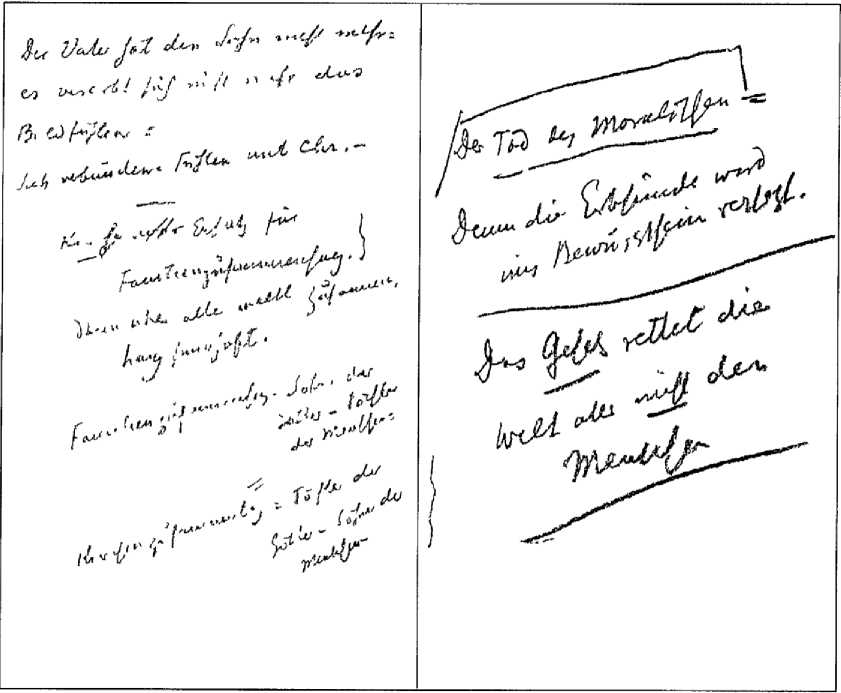 Der Vater hat den Sohn nicht mehr =
es vererbt sich nicht mehr das
Blutfühlen =
Sich verbünden. Fühlen mit Chr. –
Ersatz für
Familienzusammenhang. }
Denn über alle Welt Zusammen-
hang
Familienzusammenhg. Söhne der
Götter – Töchter
der Menschen =
Kirchenzusammenhg = Töchter der
Götter – Söhne der
Menschen
Der Tod des Moralischen =
Denn die Erbsünde wird
ins Bewusstsein verlegt.
Das Gesetz rettet die
Welt aber nicht den
Menschen